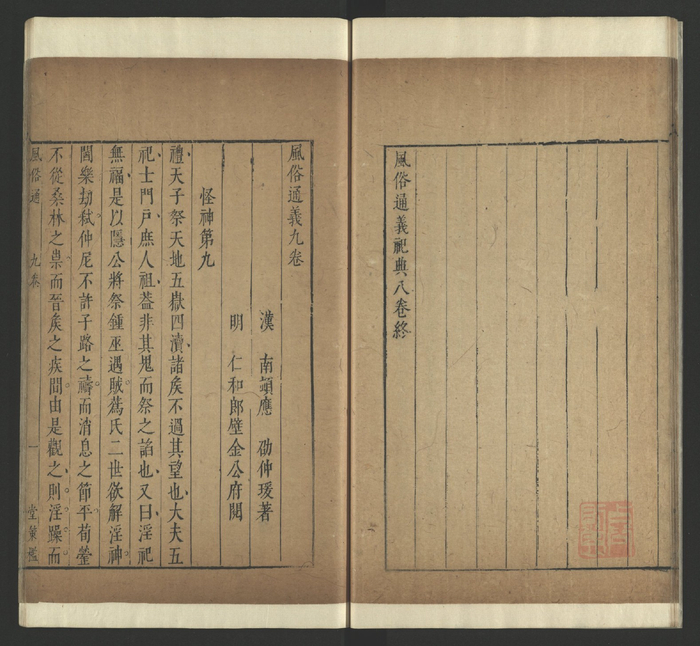 風俗通義祀典八卷終
風俗通義九卷
漢 南頓應 劭仲瑗著
明 仁和郎壁金公府閱
怪神第九
禮天子祭天地五嶽四瀆諸矦不過其望也大夫五
祀士門戶庶人祖葢非其鬼而祭之諂也又曰淫祀
無福是以隱公將祭鍾巫遇賊蒍氏二世欲解淫神
閻樂劫弒仲尼不許子路之禱而消息之節平荀罃
不從桑林之祟而晉矦之疾間由是觀之則淫躁而
風俗通 九卷 一 堂策檻